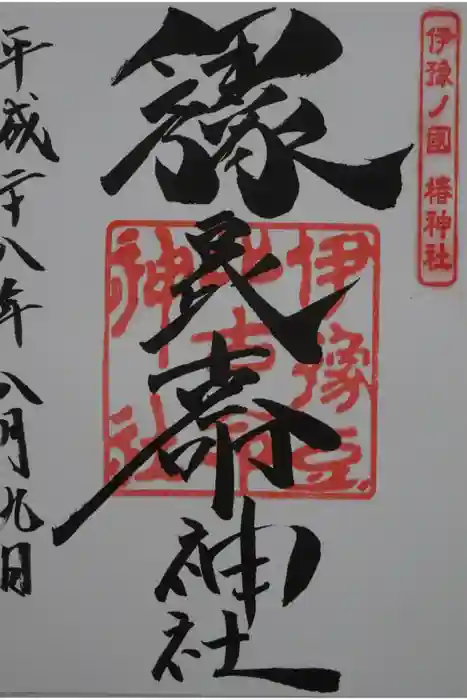 伊豫ノ國 椿神社
神社
伊豫豆
比古命
神社
平成二十八年八月九日